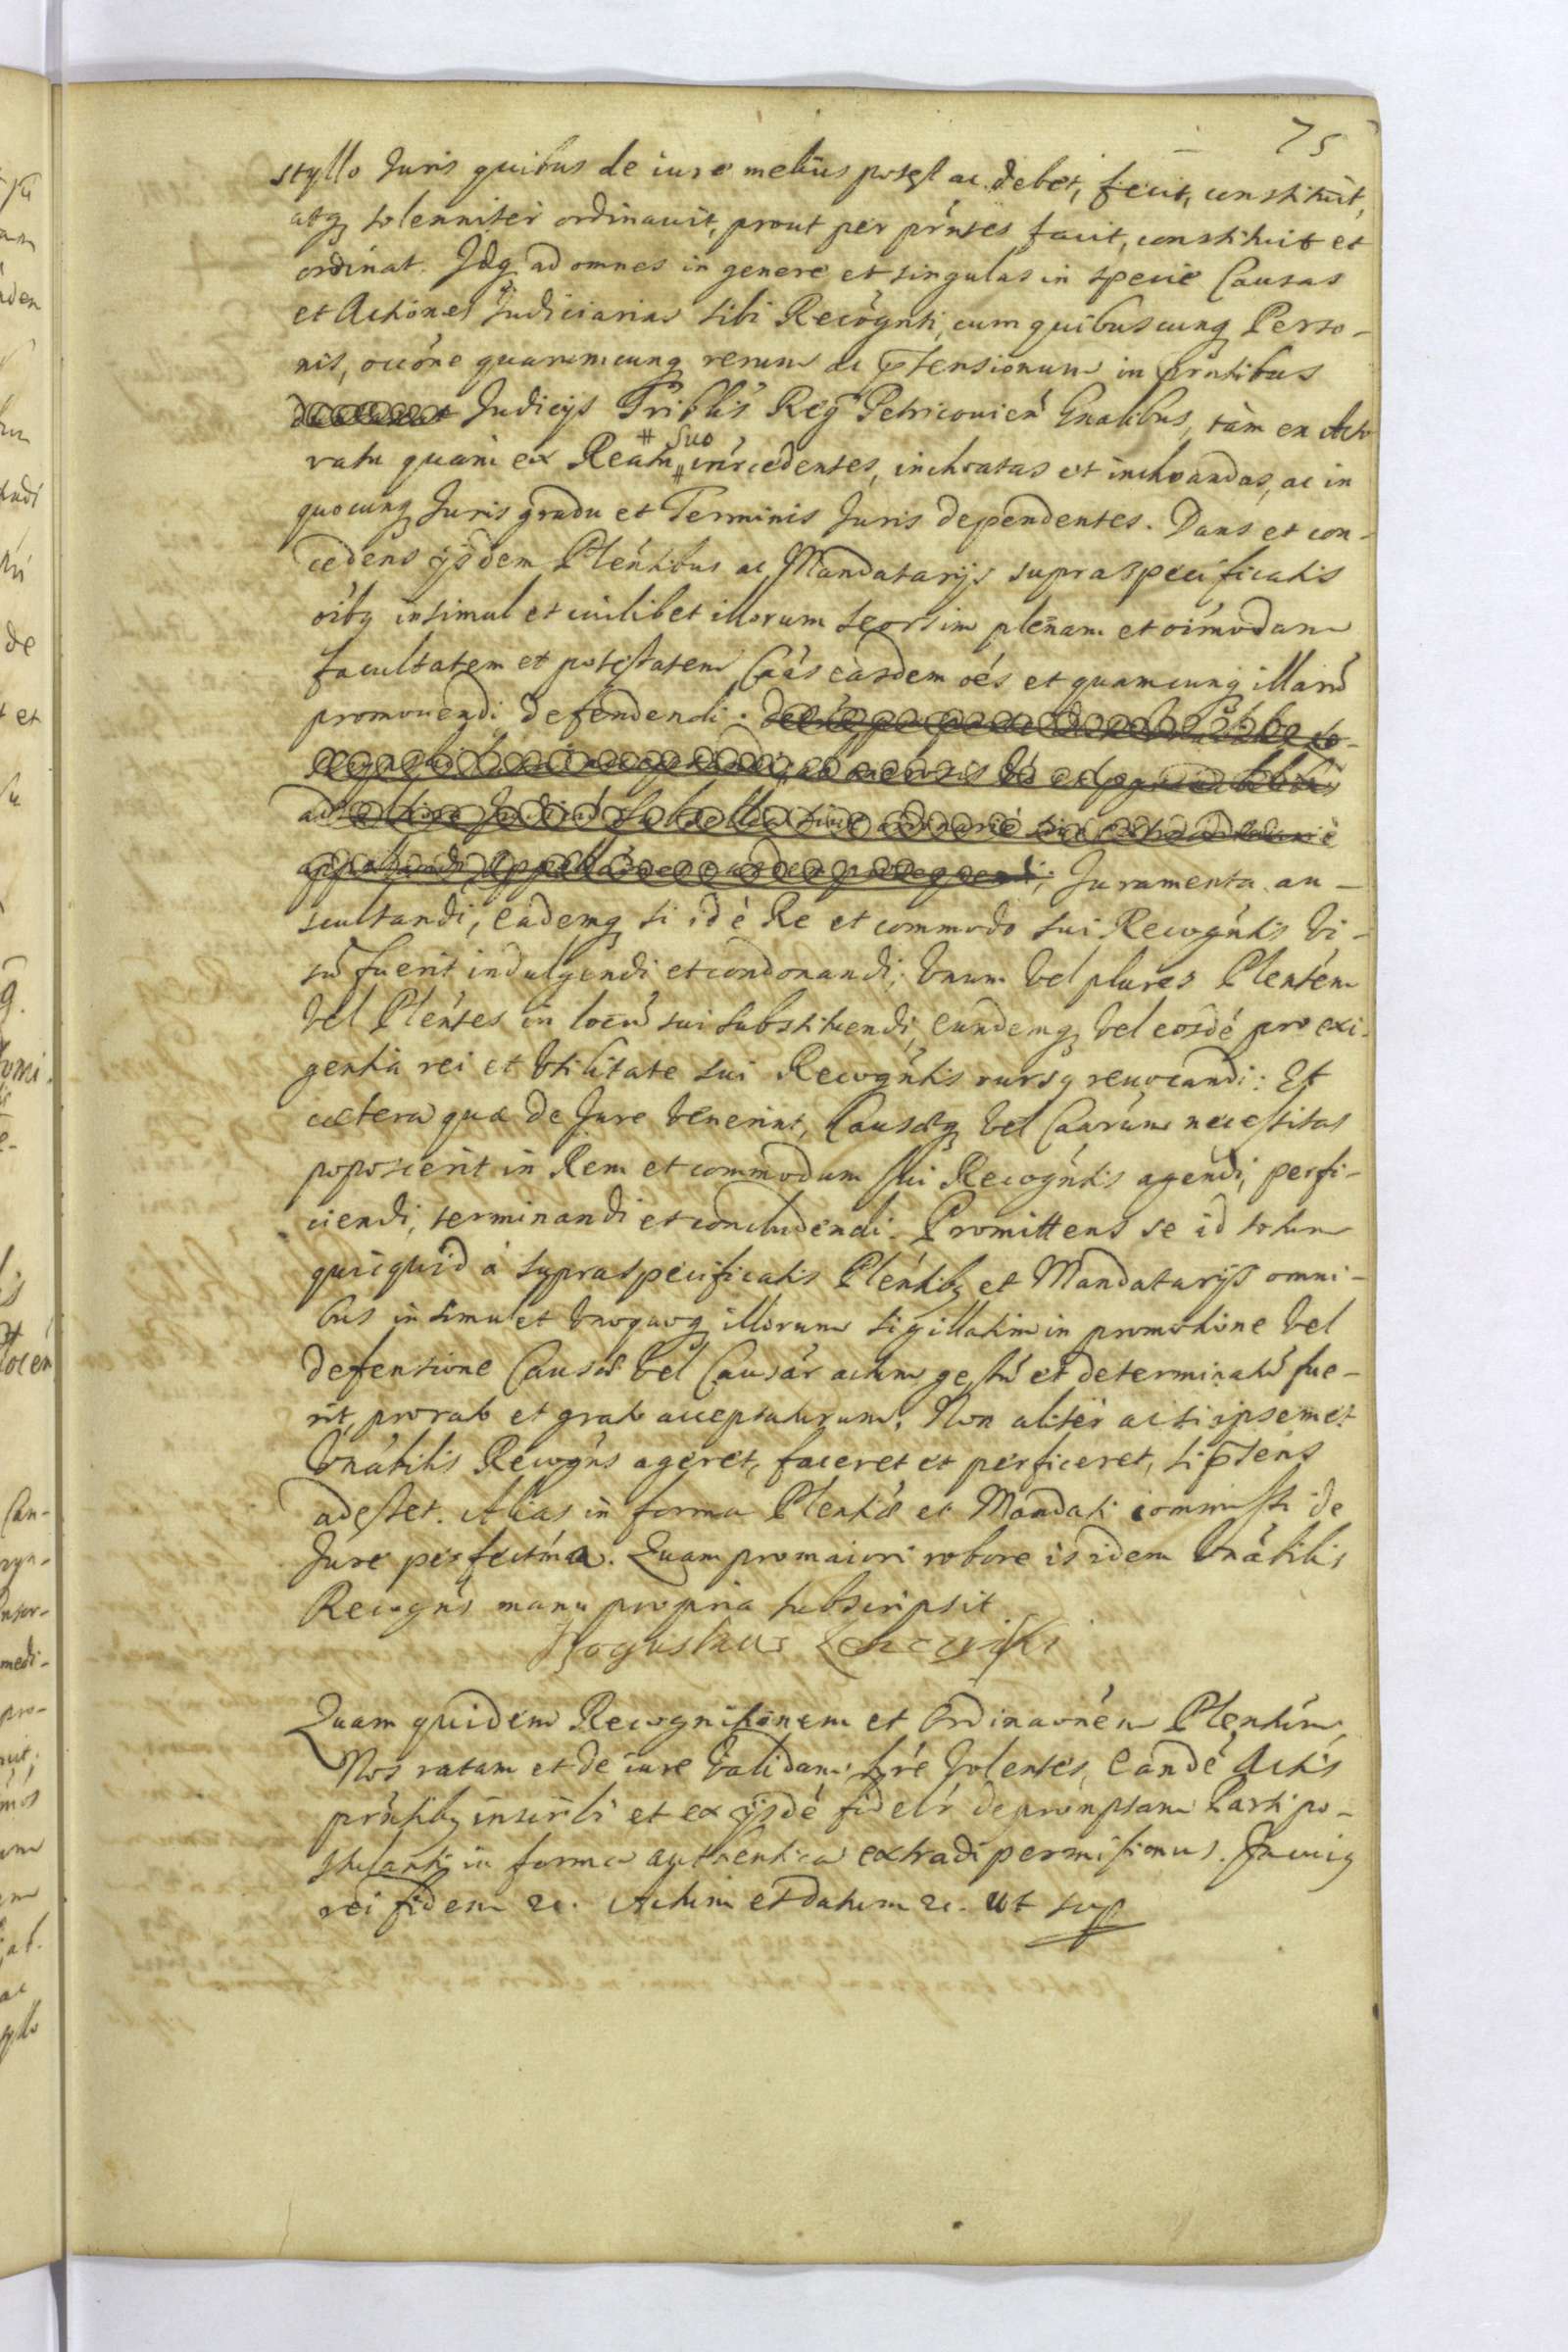 75
styllo Juris quibus de iure melius potest ac debet, fecit, constituit,
atq; solenniter ordinauit, prout per pr̃ntes facit, constituit et
ordinat. Idq; ad omnes in genere et singulas in specie Causas
et Actiones Judiciarias sibi Recognti, cum quibuscunq; Perso-
nis, occõne quarumcunq; rerum ac p̃tensionum in pr̃ntibus
Judicijs Tribłis Regⁿⁱ Petricouień Gnalibus, tàm ex Acto
ratu quàm ex Reatu # suo intercedentes, inchoatas et inchoandas, ac in
quocunq; Juris gradu et Terminis Juris dependentes. Dans et con-
cedens ijsdem Pleńtibus ac Mandatarijs supraspecificatis
oíbq; insimul et cuilibet illorum seorsim plenam et oímodam
facultatem et potestatem Caás easdem oés et quamcunq; illarũ
promouendi defendendi.
Juramenta au-
scultandi, eademq; si id è Re et commodo sui Recogńtis vi-
sũ fuerit indulgendi et condonandi; Vnum vel plures Pleńtem
vel Pleńtes in locũ sui substituendi, eundemq; vel eosdé pro exi-
gentia rei et vtilitate sui Recogńtis rursq; reuocandi: Et
cætera quæ de Jure venerint, Causæq; vel Caarum necessitas
poposcerit in Rem et commodum sui Recogńtis agendi, perfi-
ciendi, terminandi et concludendi. Promittens se id totum
quicquid à supraspecificatis Pleńtibq; et Mandatarijs omni-
bus insimul et vnoquoq; illorum sigillatim in promotione vel
defensione Causæ vel Causár actum gestũ et determinatũ fue-
rit, pro rato et grato accepturum. Non aliter ac si ipsemet
Vnábilis Recogńs ageret, faceret et perficeret, si p̃tens
adesset. Alias in forma Pleńtiæ et Mandati commissi de
Jure perfectíma. Quam pro maiori robore is idem Vnábilis
Recogńs manu propria subscripsit
Boguslaus
Quam quidem Recognitionem et Ordinaõném Pleńtium
Nos ratam et de iure validam h́re volentes, eandé Actis
pr̃ntibq; inscribi et ex ijsdé fidelr̃ depromptam Parti po-
stulanti in forma authentica extradi permisimus. In cuiq;
rei fidem &c. Actum et datum &c. ut sup̃